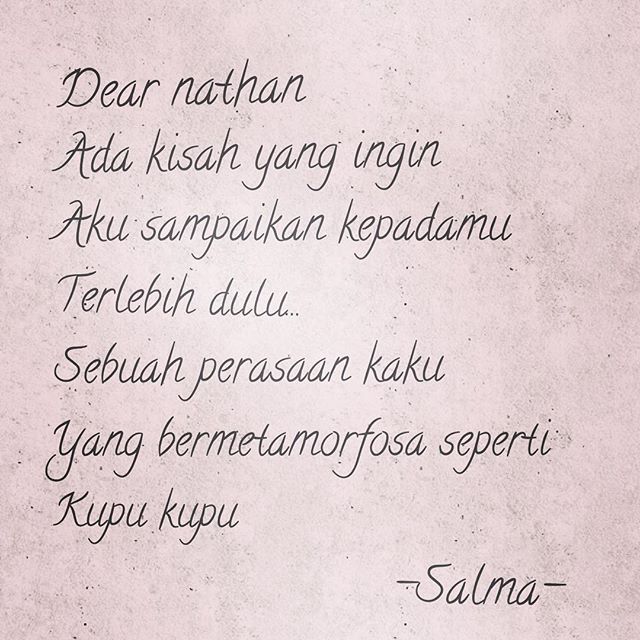 Dear nathan
Ada kisah yang ingin
Aku sampaikan kepadamu
Terlebih dulu...
Sebuah perasaan kaku
Yang bermetamorfosa seperti
Kupu kupu
-Salma-